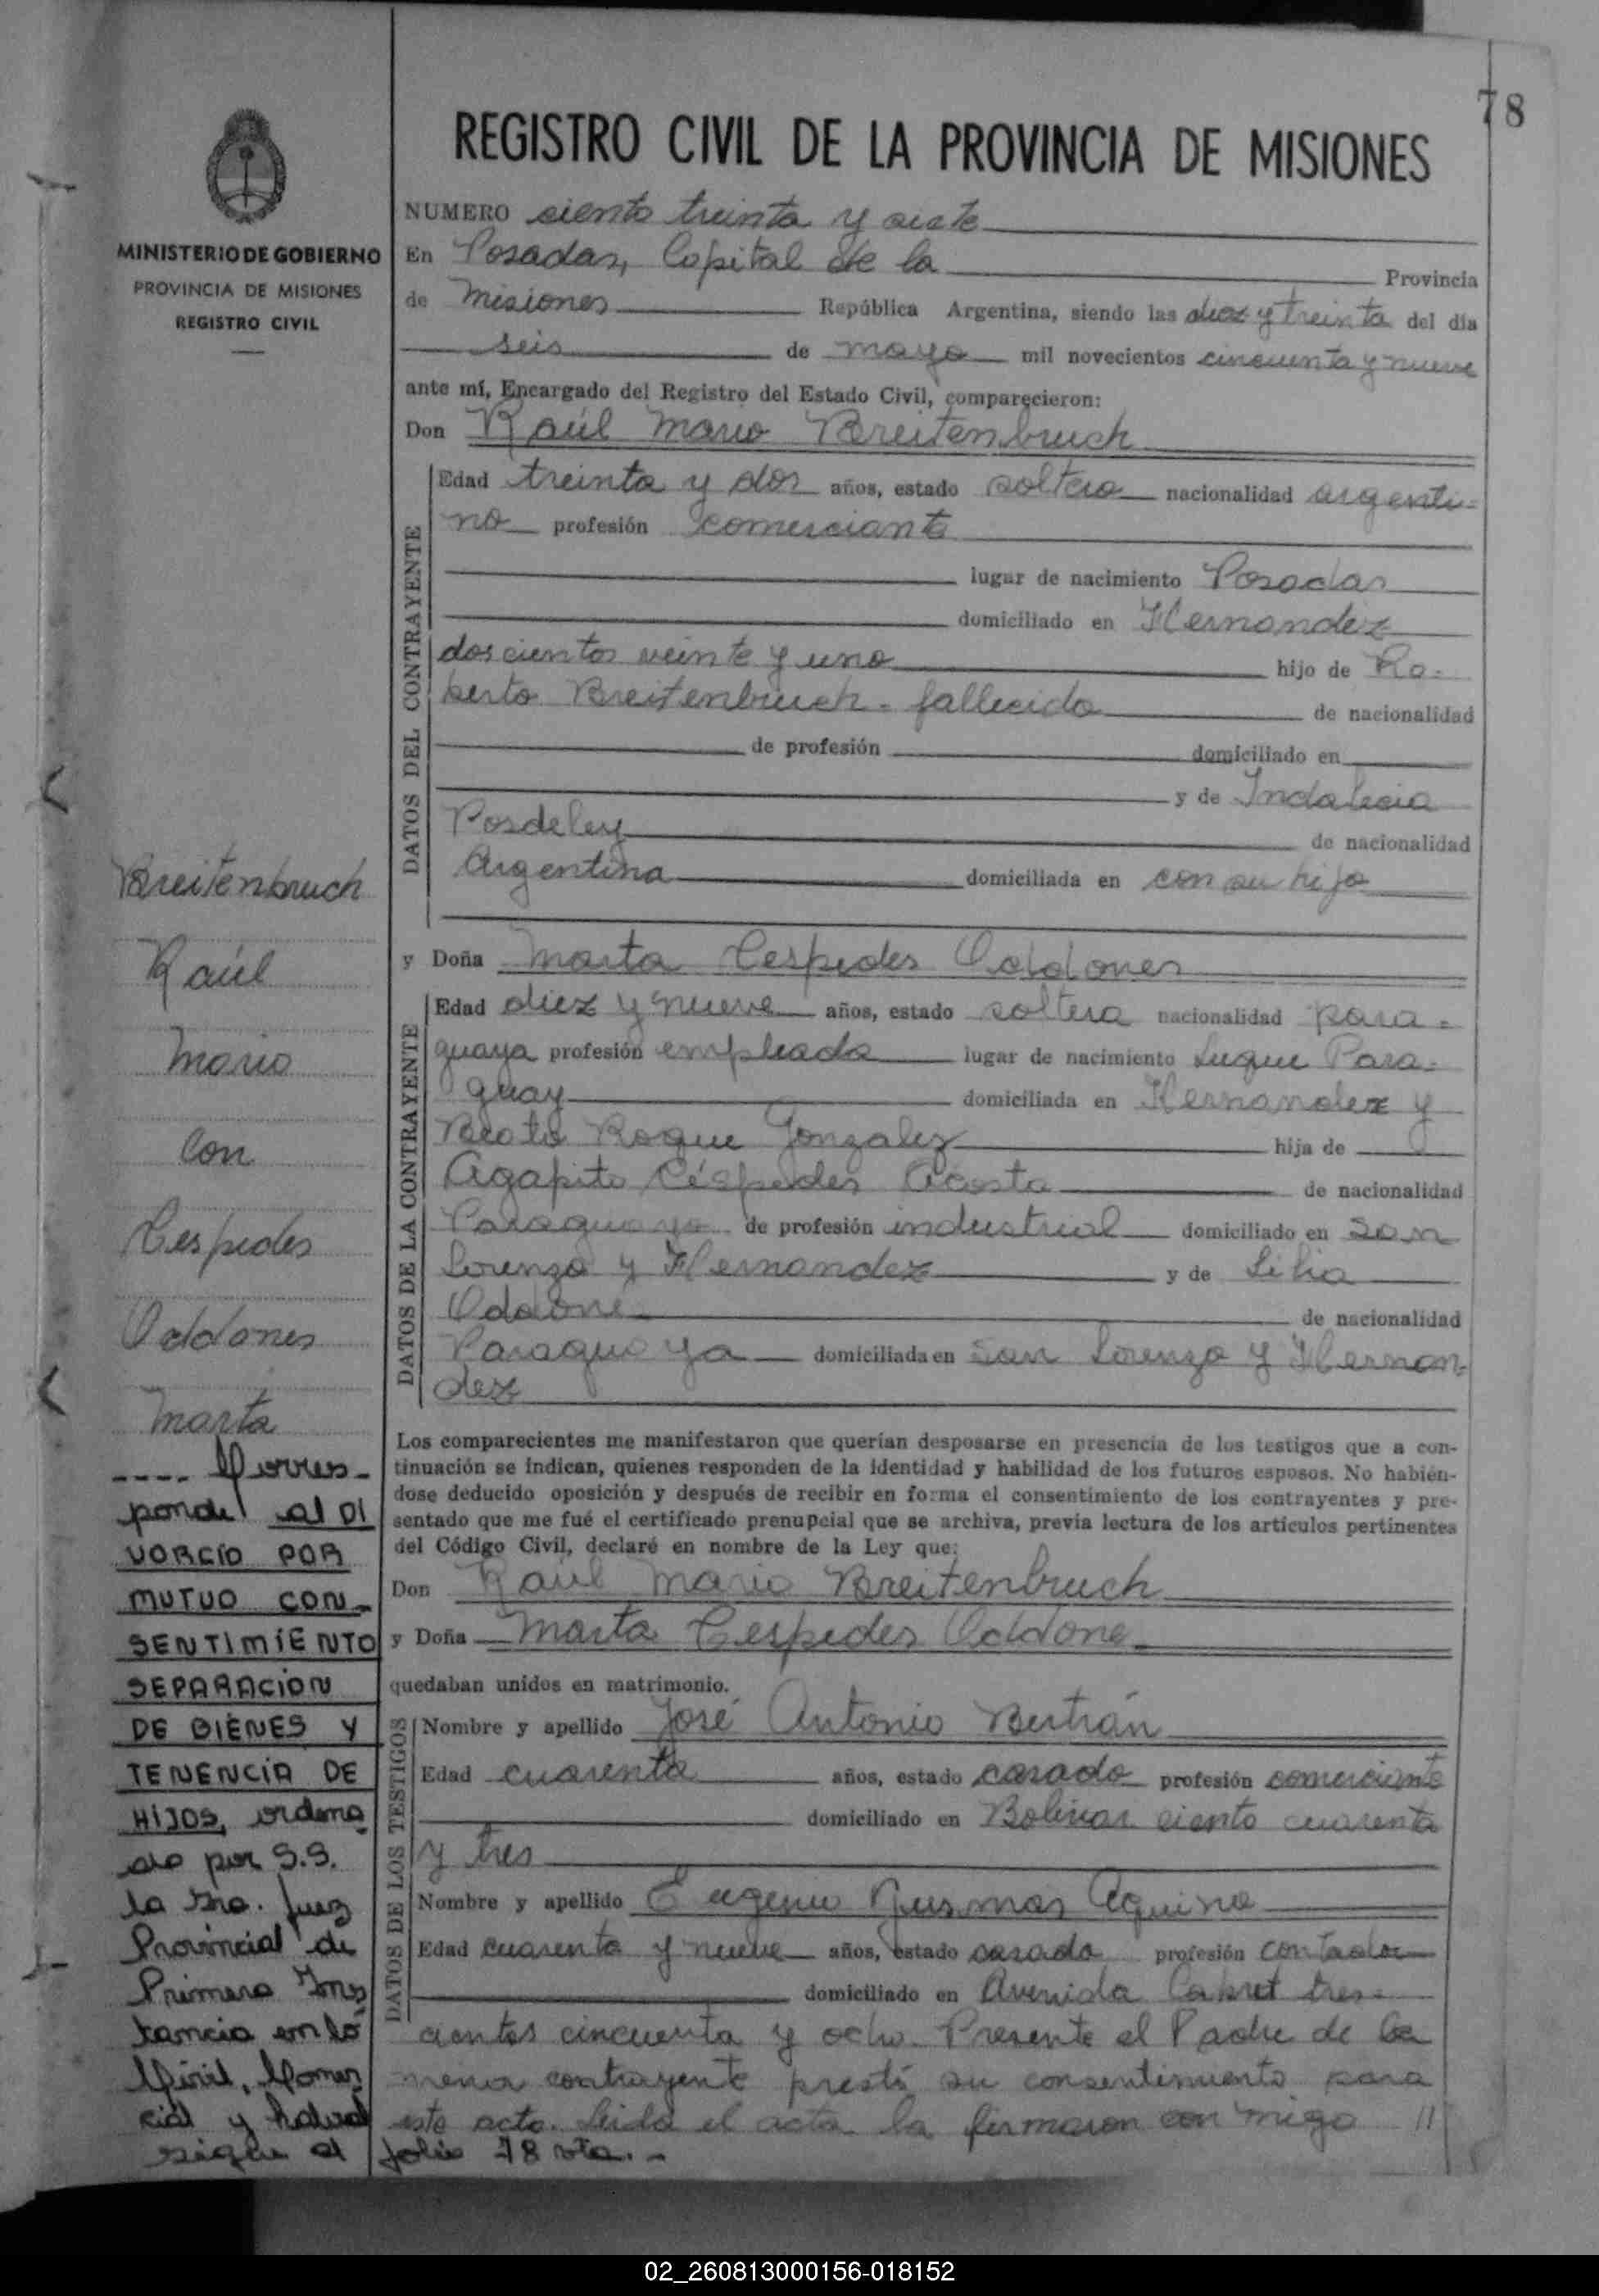 78
REGISTRO CIVIL DE LA PROVINCIA DE MISIONES
MINISTERIO DE GOBIERNO
PROVINCIA DE MISIONES
REGISTRO CIVIL
NUMERO ciento treinta y siete
En Posadas, Capital de la Provincia
de Misiones República Argentina, siendo las diez y treinta del día
seis de mayo mil novecientos cincuenta y nueve
ante mí, Encargado del Registro del Estado Civil, comparecieron:
Don Raúl Mario Breitenbruch
DATOS DEL CONTRAYENTE
Edad treinta y dos años, estado soltero nacionalidad argenti-
no profesión comerciante
lugar de nacimiento Posadas
domiciliado en Hernandez
doscientos veinte y uno hijo de Ro-
berto Breitenbruch - fallecido de nacionalidad
de profesión domiciliado en
y de Indalecia
Posdeley de nacionalidad
Argentina domiciliada en con su hijo
y Doña Marta Cespedes Oddones
DATOS DE LA CONTRAYENTE
Edad diez y nueve años, estado soltera nacionalidad para-
guaya profesión empleada lugar de nacimiento Luque Para-
guay domiciliada en Hernandez y
Beato Roque Gonzalez hija de
Agapito Céspedes Acosta de nacionalidad
Paraguaya de profesión industrial domiciliado en San
Lorenzo y Hernandez y de Lilia
Oddone de nacionalidad
Paraguaya domiciliada en San Lorenzo y Hernan-
dez
Los comparecientes me manifestaron que querían desposarse en presencia de los testigos que a con-
tinuación se indican, quienes responden de la identidad y habilidad de los futuros esposos. No habién-
dose deducido oposición y después de recibir en forma el consentimiento de los contrayentes y pre-
sentado que me fué el certificado prenupcial que se archiva, previa lectura de los artículos pertinentes
del Código Civil, declaré en nombre de la Ley que:
Don Raúl Mario Breitenbruch
y Doña Marta Cespedes Oddone
quedaban unidos en matrimonio.
DATOS DE LOS TESTIGOS
Nombre y apellido José Antonio Bertrán
Edad cuarenta años, estado casado profesión comerciante
domiciliado en Bolivar ciento cuarenta
y tres
Nombre y apellido Eugenio Aquino
Edad cuarenta y nueve años, estado casado profesión contador
domiciliado en Avenida Cabret tres-
cientos cincuenta y ocho. Presente el Padre de la
menor contrayente prestó su consentimiento para
este acto. Leida el acta la firmaron con migo //
Breitenbruch
Raúl
Mario
con
Cespedes
Oddones
Marta
---- Corres-
ponde al DI
VORCIO POR
MUTUO CON-
SENTIMIENTO
SEPARACION
DE BIENES Y
TENENCIA DE
HIJOS, ordena
do por S.S.
la Sra. Juez
Provincial de
Primera Ins
tancia en lo
Civil, Comer
cial y
sigue al folio 78 vta.-
02_260813000156-018152